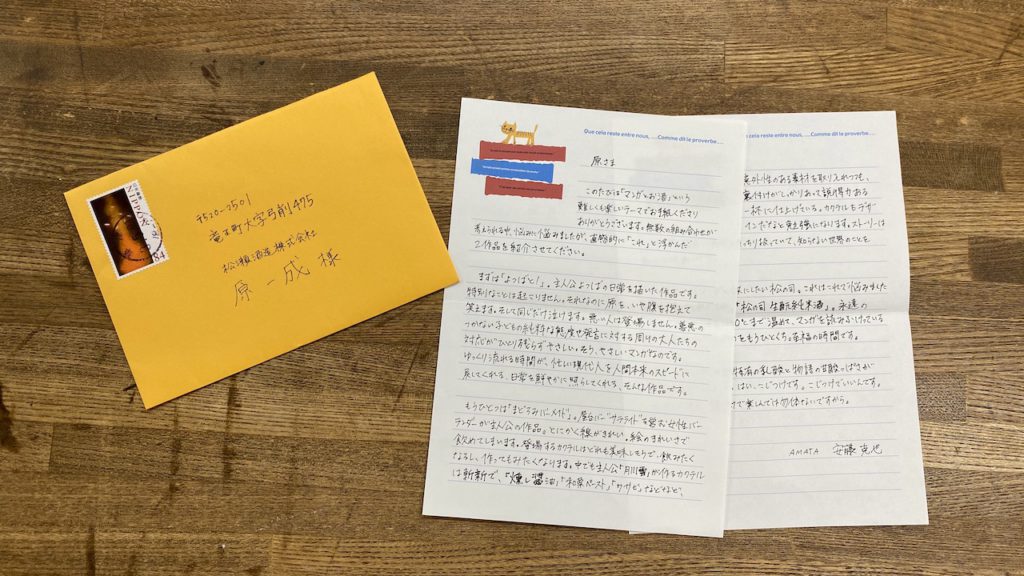 〒520-2501
竜王町大字弓削475
松瀬酒造株式会社
原 一成 様
NIPPON
84
Que cela reste entre nous, ....Comme dit le proverbe....
原さま
このたびは「マンガとお酒」という
難しくも楽しいテーマでお手紙くださり
ありがとうございます。無数の組み合わせが
考えられる中、悩みに悩みましたが、直感的に「これ」と浮かんだ
2作品を紹介させてください。
まずは「よつばと!」。主人公よつばの日常を描いた作品です。
特別なことは起こりません。それなのに涙を、いや腹を抱えて
笑えます。そして同じだけ泣けます。悪い人は登場しません。善悪の
つかない子どもの純粋な態度や発言に対する周りの大人たちの
対応がひとり残らずやさしい。そう、やさしいマンガなのです。
ゆっくり流れる時間が、忙しい現代人を人間本来のスピードに
戻してくれる、日常を鮮やかに照らしてくれる、そんな作品です。
もうひとつは「まどろみバーメイド」。屋台バー"サテライト"を営む女性バー
テンダーが主人公の作品。とにかく線がきれい。絵のきれいさで
飲めてしまいます。登場するカクテルはどれも美味しそうで、飲みたく
なるし、作ってもみたくなります。中でも主人公「月川雪」が作るカクテル
は斬新で、「燻し醤油」「和栗ペースト」「ワサビ」などなど、
la reste entre nous, ....Comme dit le proverbe....
意外性のある素材を取り入れつつも、
裏付けがしっかりあって説得力ある
一杯に仕上げている。カクテルもデザ
インだなと勉強になります。ストーリーは
っちり扱っていて、知らない世界のことを
にしたい松の司。これはこれで悩みました
「松の司 生酛純米酒」。永遠の
まで温めて、マンガを読みふけっている
をもうひとくち。至福の時間です。
特有の乳酸と物語の甘酸っぱさが
はい、こじつけです。こじつけでいいんです。
けで楽しんでは勿体ないですから。
AMATA 安藤克也